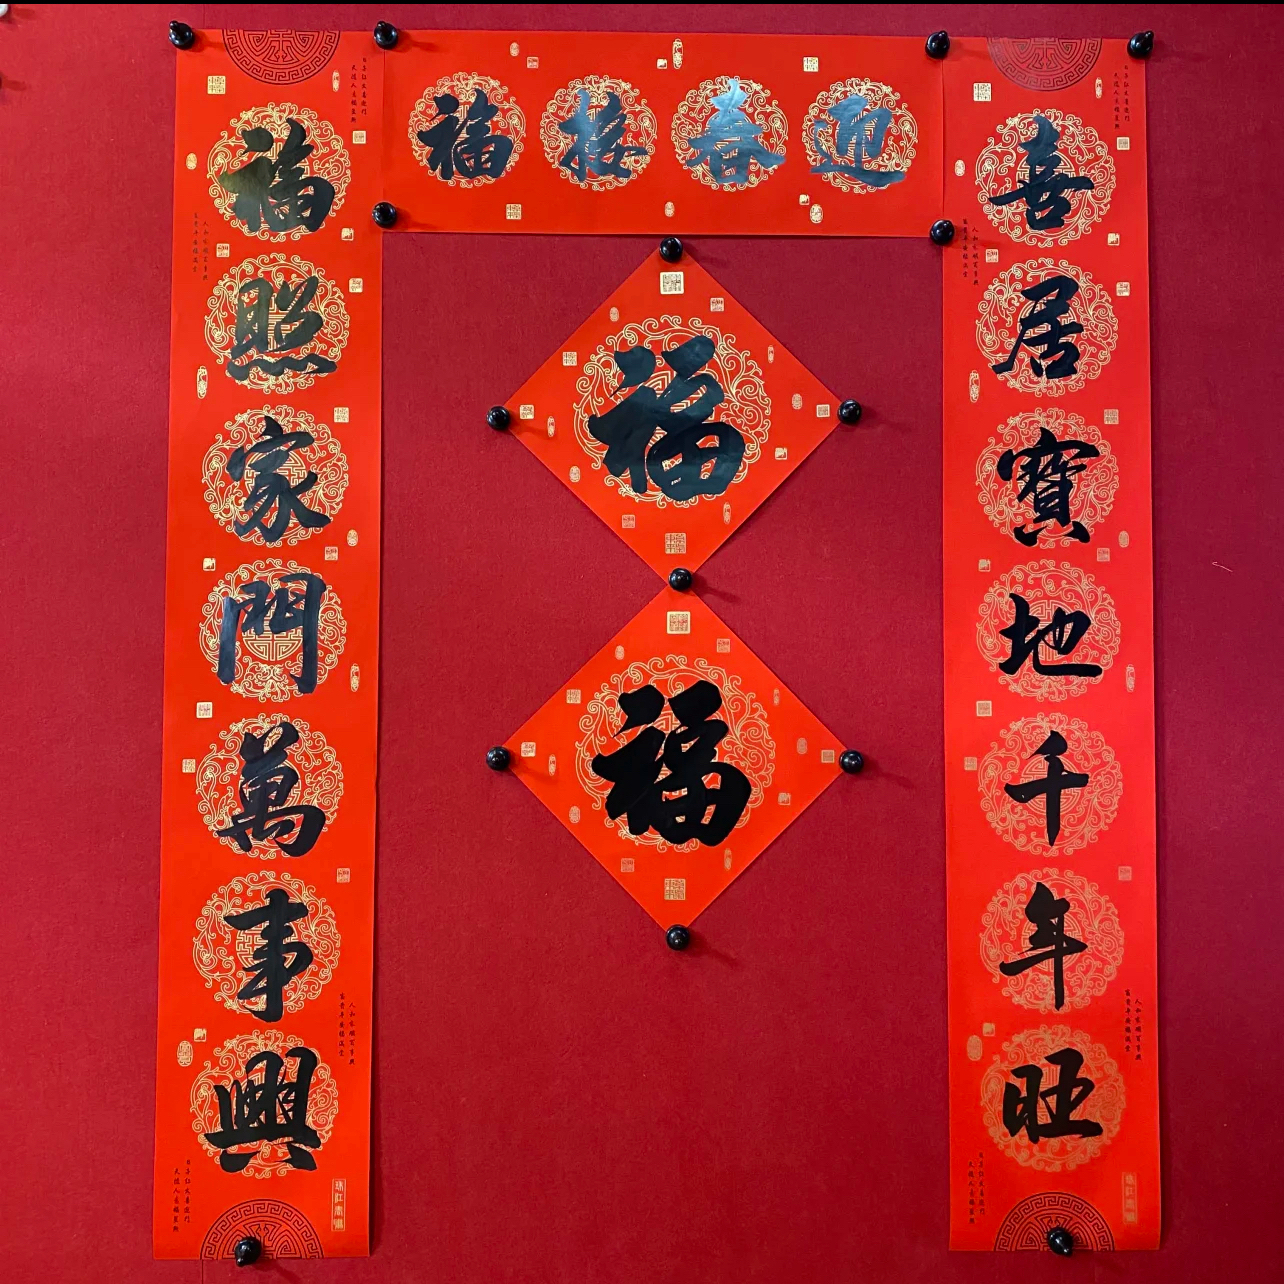 迎春接福
喜居寶地千年旺
福照家門萬事興
福
福